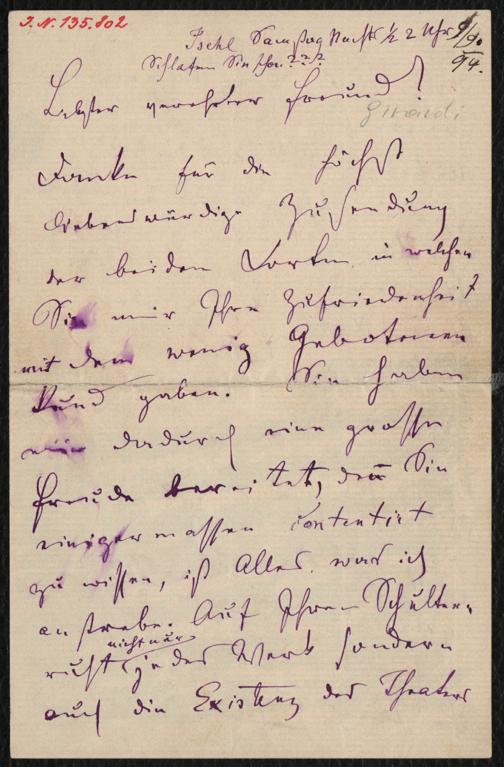 J.N. 135.802
Ischl Samstag Nachts ½ 2 Uhr 9/9. 94.
Schlafen Sie schon ???
Liebster verehrter Freund!
Girardi
Danke für die höchst
liebenswürdige Zusendung
der beiden Karten in welchen
Sie mir Ihre Zufriedenheit
mit dem wenig Gebotenen
Kund gaben. Sie haben
mir dadurch eine grosse
Freude bereitet, den̄ Sie
einigermassen contentirt
zu wissen, ist Alles, was ich
anstrebe. Auf Ihren Schultern
ruht nicht nur jedes Werk sondern
auch die Existenz des Theaters